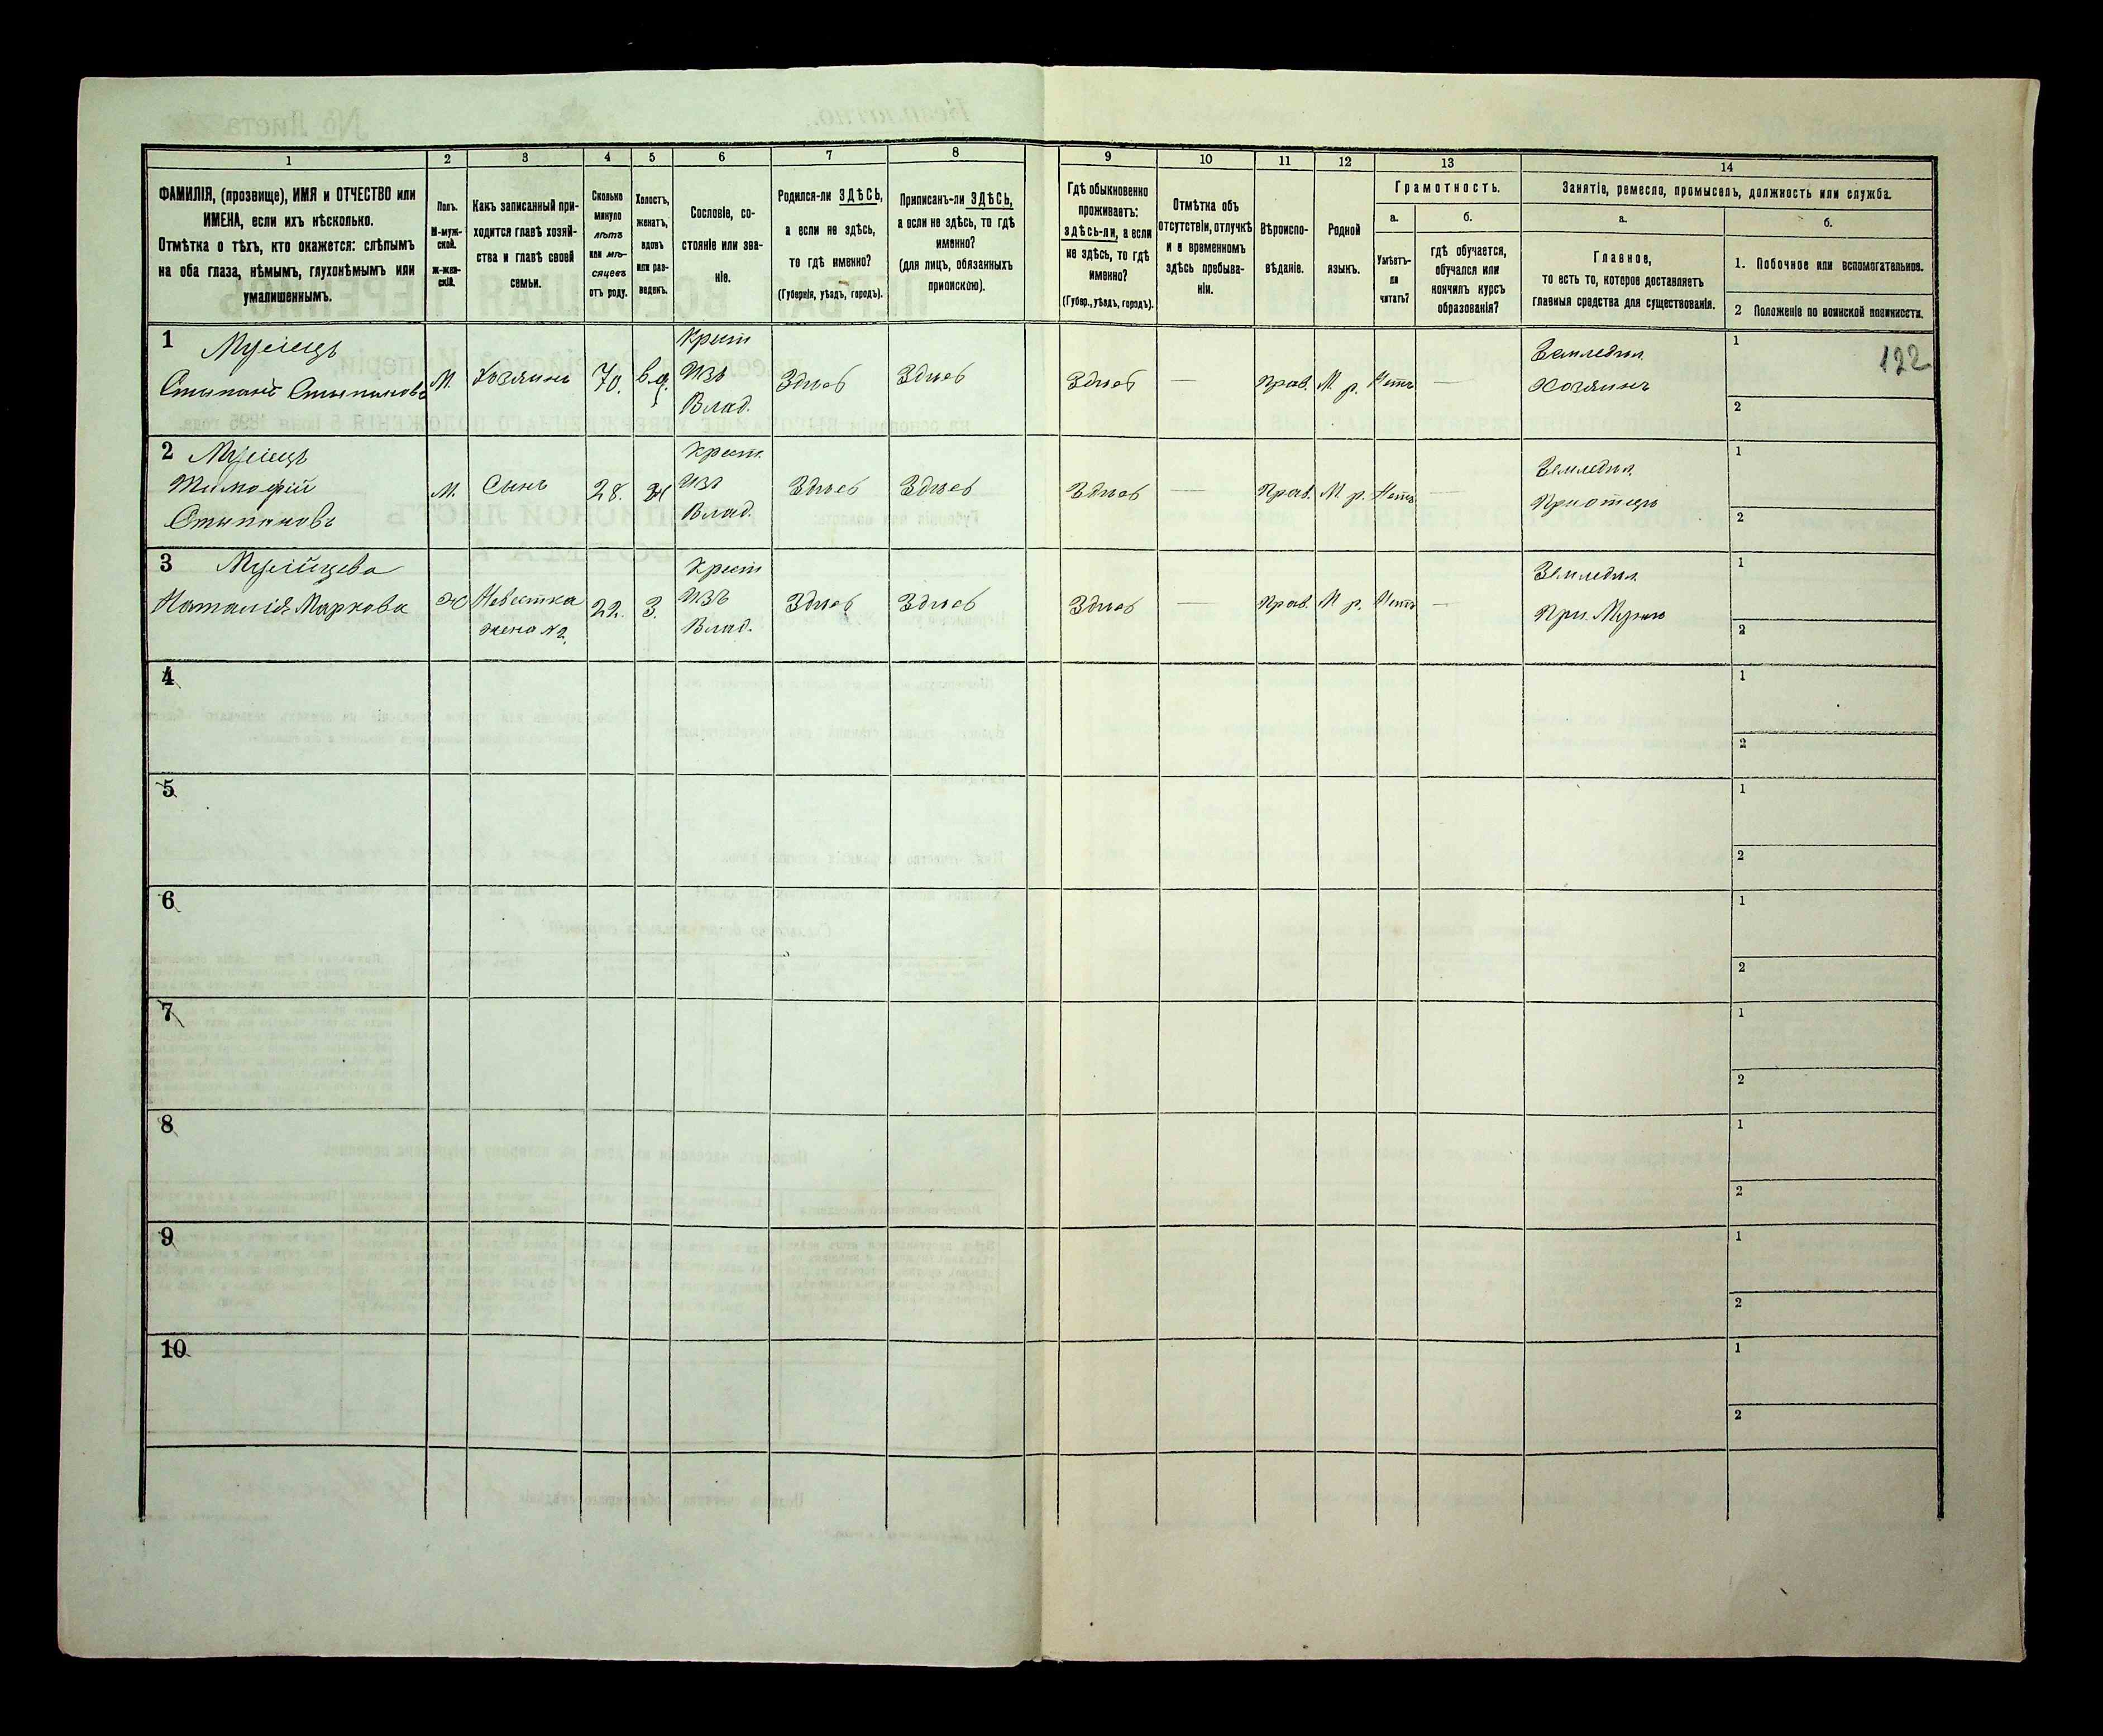 122
1
2
3
4
5
6
7
8
9
10
11
12
13
14
ФАМИЛІЯ, (прозвище), ИМЯ и ОТЧЕСТВО или
ИМЕНА, если ихъ нѣсколько.
Отмѣтка о тѣхъ, кто окажется: слѣпымъ
на оба глаза, нѣмымъ, глухонѣмымъ или
умалишеннымъ.
Полъ.
М-муж-
ской.
Ж-жен-
скій.
Какъ записанный при-
ходится главѣ хозяй-
ства и главѣ своей
семьи.
Сколько
минуло
лѣтъ
или мѣ-
сяцевъ
отъ роду.
Холостъ,
женатъ,
вдовъ
или раз-
веденъ.
Сословіе, со-
стояніе или зва-
ніе.
Родился-ли ЗДѢСЬ,
а если не здѣсь,
то гдѣ именно?
(Губернія, уѣздъ, городъ).
Приписанъ-ли ЗДѢСЬ,
а если не здѣсь, то гдѣ
именно?
(для лицъ, обязанныхъ
припискою).
Гдѣ обыкновенно
проживаетъ:
здѣсь-ли, а если
не здѣсь, то гдѣ
именно?
(Губер., уѣздъ, городъ).
Отмѣтка объ
отсутствіи, отлучкѣ
и о временномъ
здѣсь пребыва-
ніи.
Вѣроиспо-
вѣданіе.
Родной
языкъ.
Грамотность.
а.
Умѣетъ-
ли
читать?
б.
гдѣ обучается,
обучался или
кончилъ курсъ
образованія?
Занятіе, ремесло, промыселъ, должность или служба.
а.
Главное,
то есть то, которое доставляетъ
главныя средства для существованія.
б.
1. Побочное или вспомогательное.
2 Положеніе по воинской повинности.
1
Степанъ Степановъ
М.
Хозяинъ
70.
вд.
Крест
Изъ
Влад.
Здѣсь
Здѣсь
Здѣсь
—
Прав.
М р.
Нетъ
—
Земледѣл.
Хозяинъ
1
2
2
Тимофій
Степановъ
М.
Сынъ
28.
Ж
Крест.
Изъ
Влад.
Здѣсь
Здѣсь
Здѣсь
—
Прав.
М р.
Нетъ
—
Земледѣл.
При отцѣ
1
2
3
Наталія Маркова
Ж
Невестка
жена №2.
22.
З.
Крест
Изъ
Влад.
Здѣсь
Здѣсь
Здѣсь
—
Прав.
М р.
Нетъ
—
Земледѣл.
При Мужѣ
1
2
4
1
2
5
1
2
6
1
2
7
1
2
8
1
2
9
1
2
10
1
2